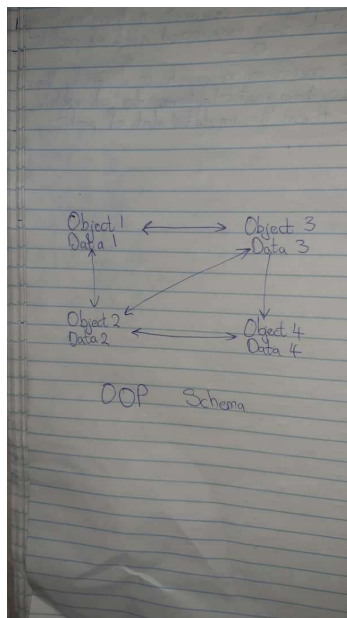 Object 1
Data 1
Object 3
Data 3
Object 2
Data 2
Object 4
Data 4
OOP Schema